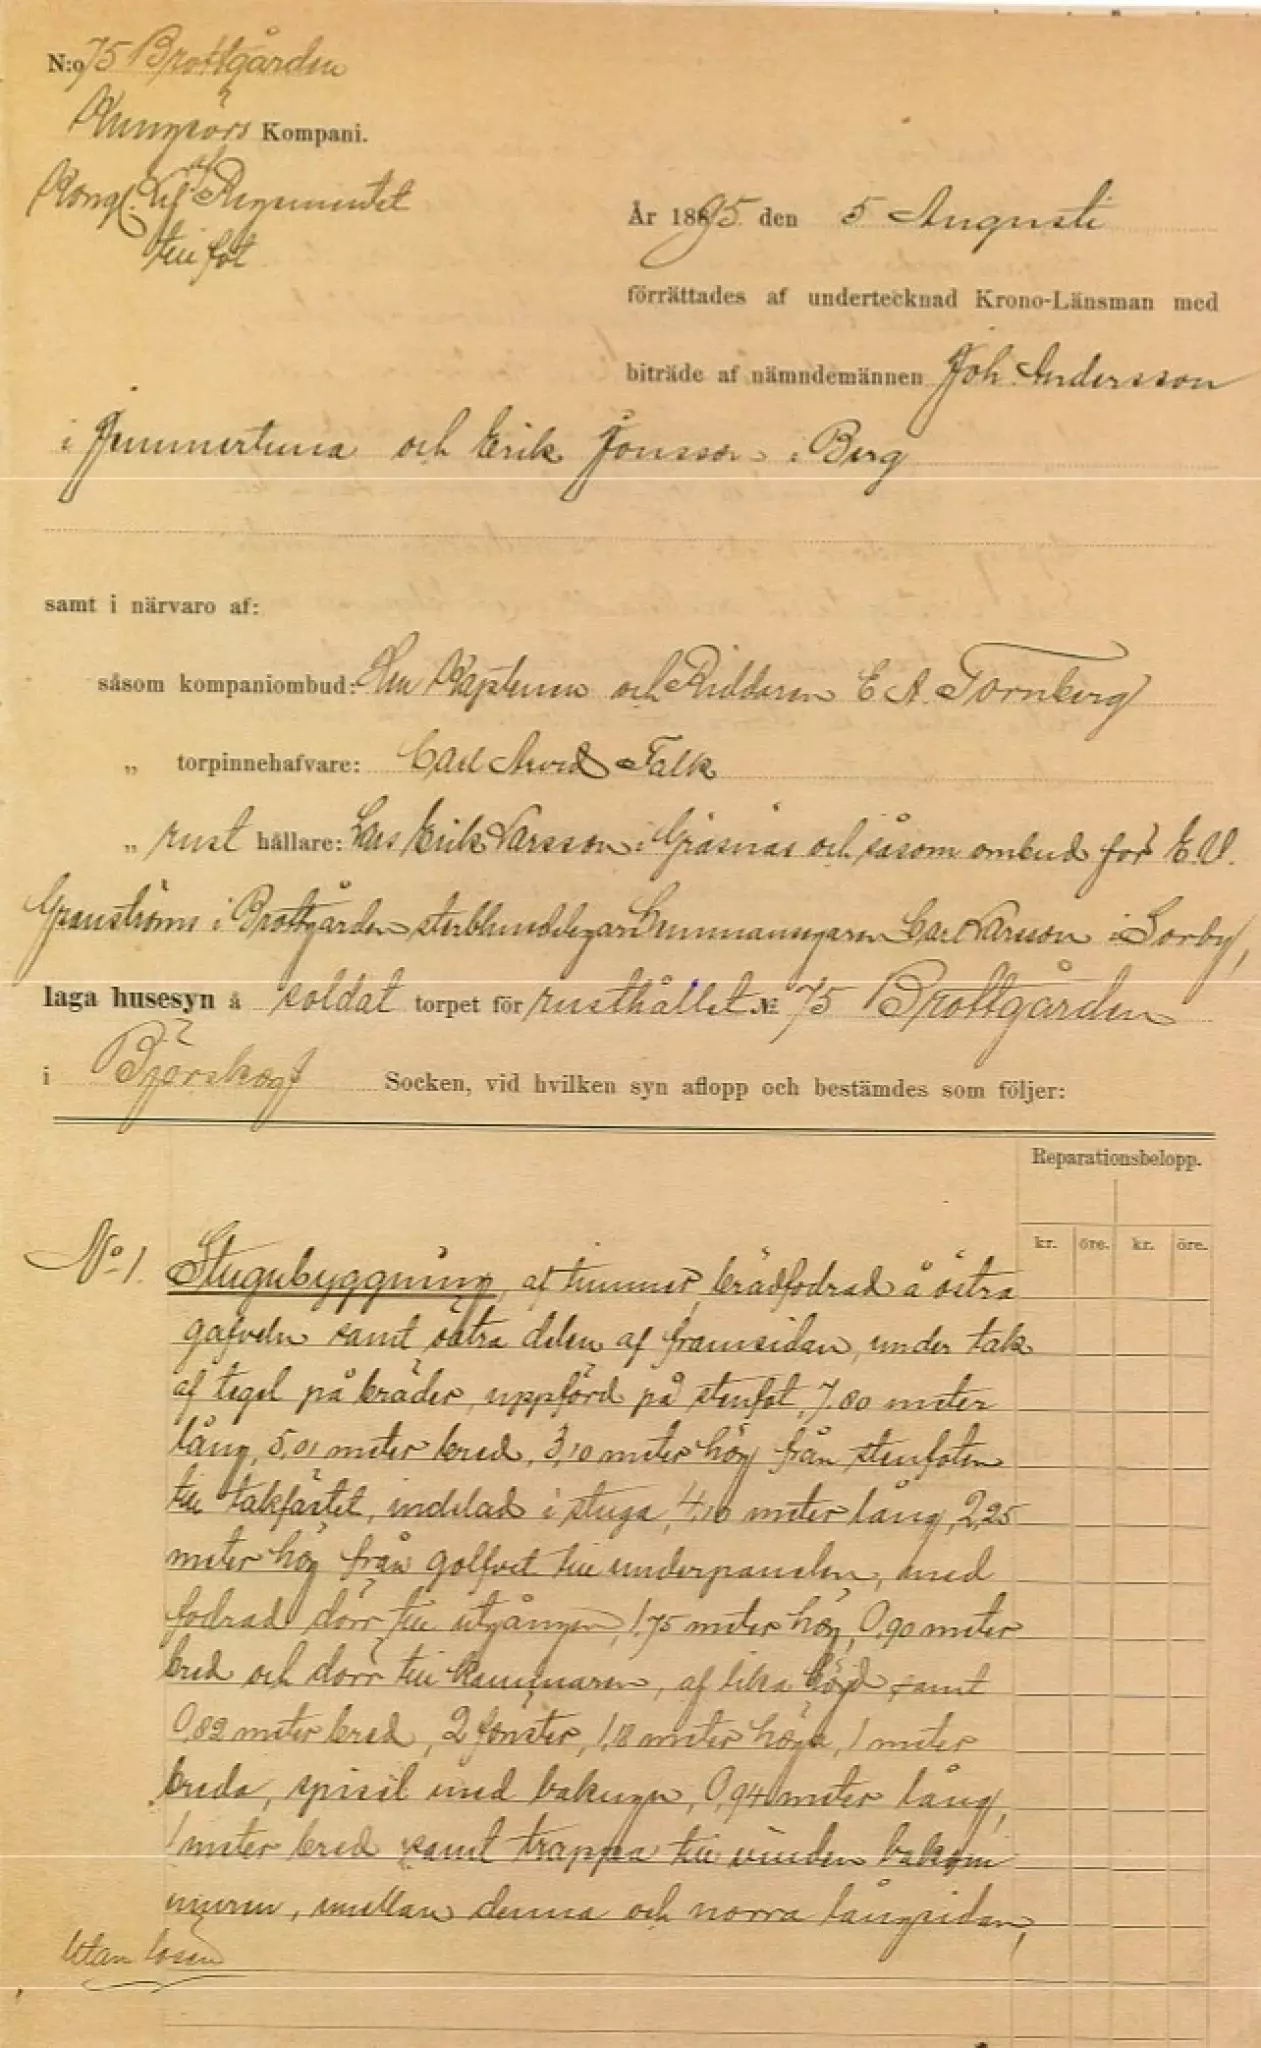 N:o 75 Brottgården
Kungsörs Kompani.
Kongl. Lif Regementet
till fot.
År 1895 den 5 Augusti
förrättades af undertecknad Krono-Länsman med
biträde af nämndemännen Joh. Andersson
i Jemmertuna och Erik Jonsson i Berg
samt i närvaro af:
såsom kompaniombud: Herr Kaptenen och Riddaren E A. Tornberg
„ torpinnehafvare: Carl Arvid Falk
„ rust hållare: Lars Erik Larsson i Gräsnäs och såsom ombud för E. U.
Granströms i Brottgården sterbhusdelegare Hemmansegaren Carl Larsson i Sörby,
laga husesyn å soldat torpet för rusthållet № 75 Brottgården
i Björskogs Socken, vid hvilken syn aflopp och bestämdes som följer:
Reparationsbelopp.
kr. öre. kr. öre.
No 1. Stugubyggning, af timmer, brädfodrad å östra
gafveln samt östra delen af framsidan, under tak
af tegel på bräder, uppförd på stenfot, 7.80 meter
lång, 5,01 meter bred, 3,10 meter hög från stenfoten
till takfästet, indelad i stuga, 4,10 meter lång, 2,25
meter hög från golfvet till underpanelen, med
fodrad dörr till utgången, 1,75 meter hög, 0,90 meter
bred och dörr till kammaren, af lika höjd samt
0,82 meter bred, 2 fönster, 1,18 meter höga, 1 meter
breda, spisel med bakugn, 0,94 meter lång,
1 meter bred samt trappa till vinden bakom
muren, mellan denna och norra långsidan,
Utan lösen